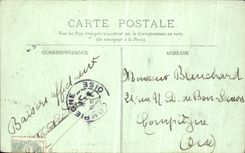 CARTE POSTALE
Tous les Pays étrangers n'acceptent pas la correspondance au recto.
(Se renseigner à la Poste).
CORRESPONDANCE
ADRESSE
Baisers affectueux
COMPIÈGNE
OISE
Monsieur Blanchard
21 rue N. D. de Bon Secours
Compiègne
(Oise)